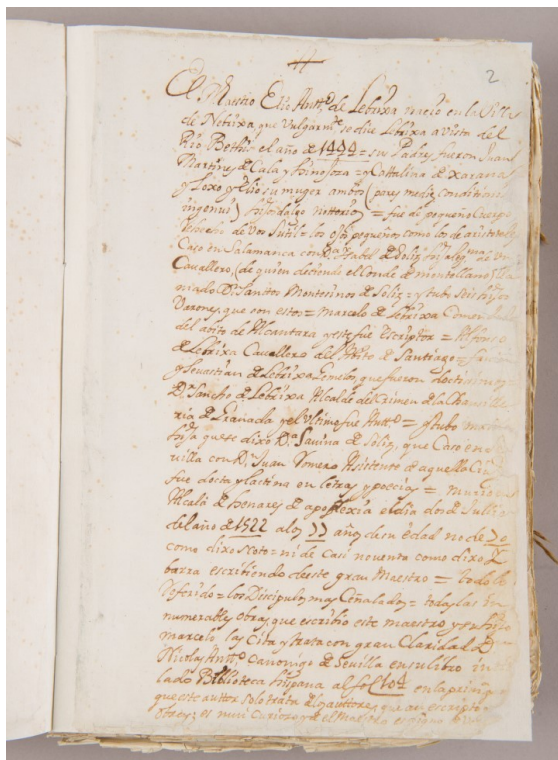 2
El Maestro Elio Antt.º de Lebrixa nacio en la Villa
de Nebrixa, que vulgarm.te se dice Lebrixa a vista del
Rio Bethis el año de 1444 = sus Padres fueron Juan
Martinez de Cala y Hinojosa = y Cattalina de Xarana
y Loxo y Ojo su muger ambos (
ingenui) hijosdalgo nottorios = fue de pequeño Cuerpo
derecho de Voz Sutil = los ojos pequeños, como los de aristoteles
Caso en Salamanca con D.ª Izabel de Soliz hija de un
Cauallero, (de quien deciende el Conde de montellano) lla
mado D.n Sanctos Montesinos de Soliz = y tubo seis hijos
Varones, que son estos = marcelo de Lebrixa Comendador
del auito de Alcantara y este fue Escriptor = Alfonso
de Lebrixa Cauallero del Auito de Santiago =
y Seuastian de Lebrixa Gemelos, que fueron doctisimos =
D.n Sancho de Lebrixa Alcalde del Crimen de la Chancille
ria de Granada y el Vltimo fue Antt.º = y tubo
hija que se dixo D.ª Sauina de Soliz, que Caso en Se
uilla con D.n Juan Romero Asistente de aquella Ciu
fue docta y lactina en letras y poecias = murio en
Alcala de Henares de apoplexia el dia dos de Jullio
del año de 1522 a los 77 años de su edad no de 70
como dixo Scoto = ni de casi nouenta como dixo
barra escribiendo de este gran Maestro = todo lo
referido = los Discipulos mas Señalados = todas las in
numerables obras, que escribio este maestro y su hijo
marcelo las cita y trata con gran Claridad D.n
Nicolas Antt.º Canonigo de Seuilla en su libro inti
lado Bibliotteca hispana al fol 104 en la prim
que este autor solo trata de los auttores, que an escripto
obras; es mui Curiozo y el Maestro